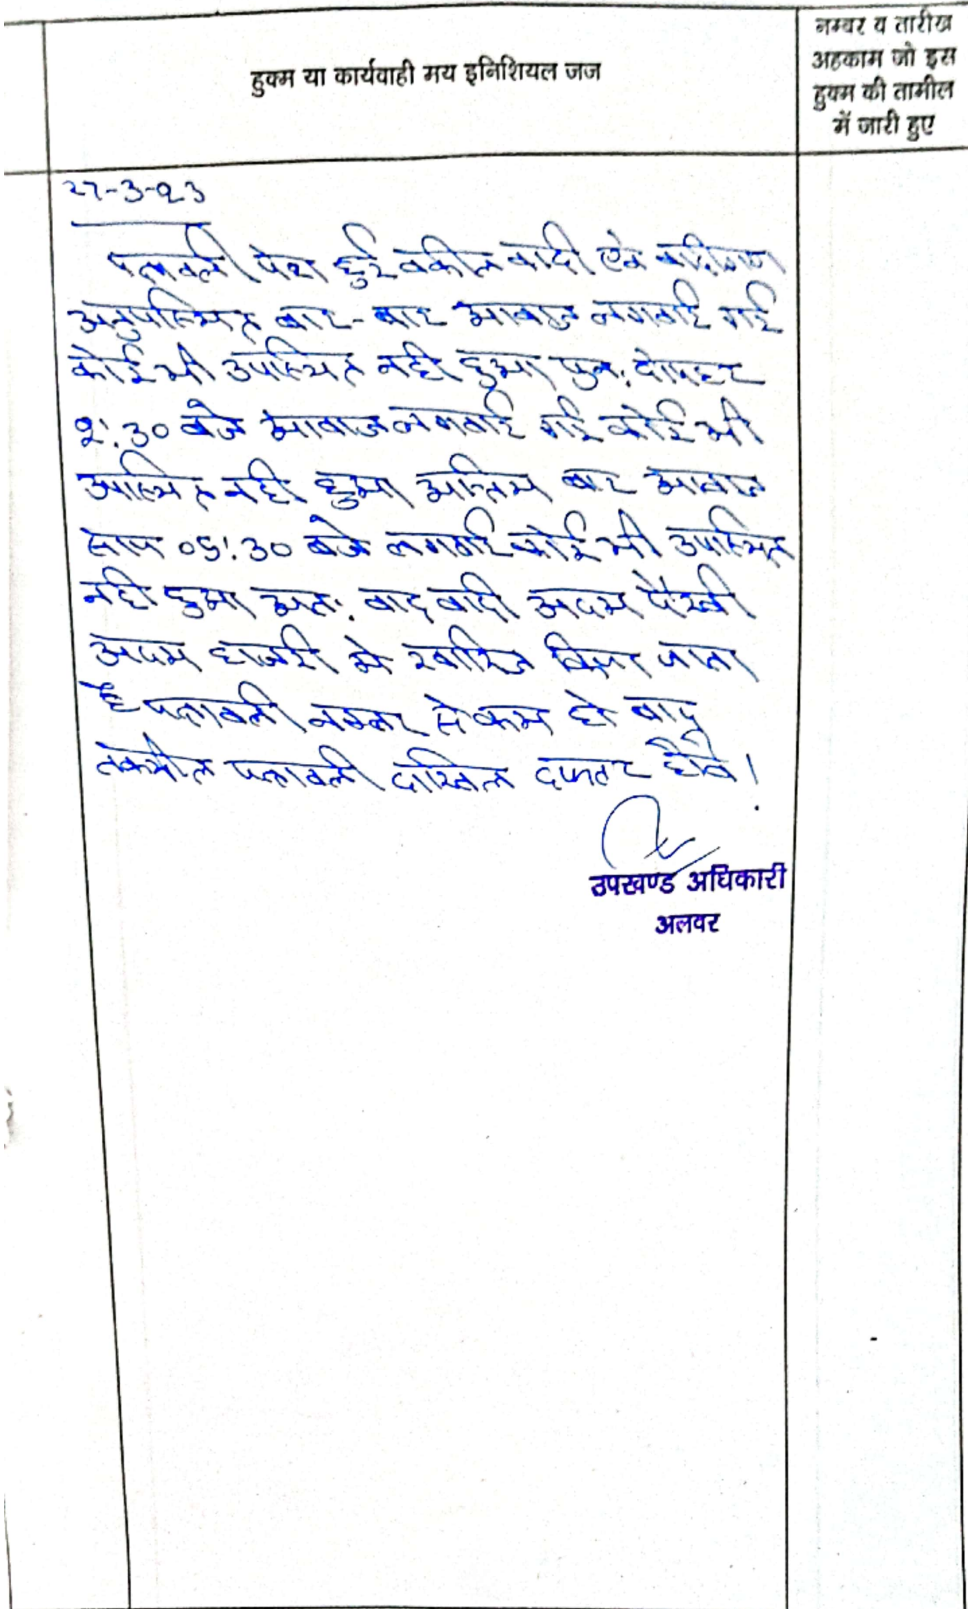 हुक्म या कार्यवाही मय इनिशियल जज
नम्बर व तारीख
अहकाम जो इस
हुक्म की तामील
में जारी हुए
27-3-23
पत्रावली पेश हुई वकील वादी एवं वादीगण
अनुपस्थित बार-बार आवाज लगवाई गई
कोई भी उपस्थित नही हुआ पुन: दोपहर
2:30 बजे आवाज लगवाई गई कोई भी
उपस्थित नही हुआ अन्तिम बार आवाज
सांय 05:30 बजे लगवाई कोई भी उपस्थित
नही हुआ अत: वाद वादी अदम पैरवी
अदम हाजरी मे खारिज किया जाता
है पत्रावली नम्बर से कम हो बाद
तकमील पत्रावली दाखिल दफ्तर होवे।
उपखण्ड अधिकारी
अलवर